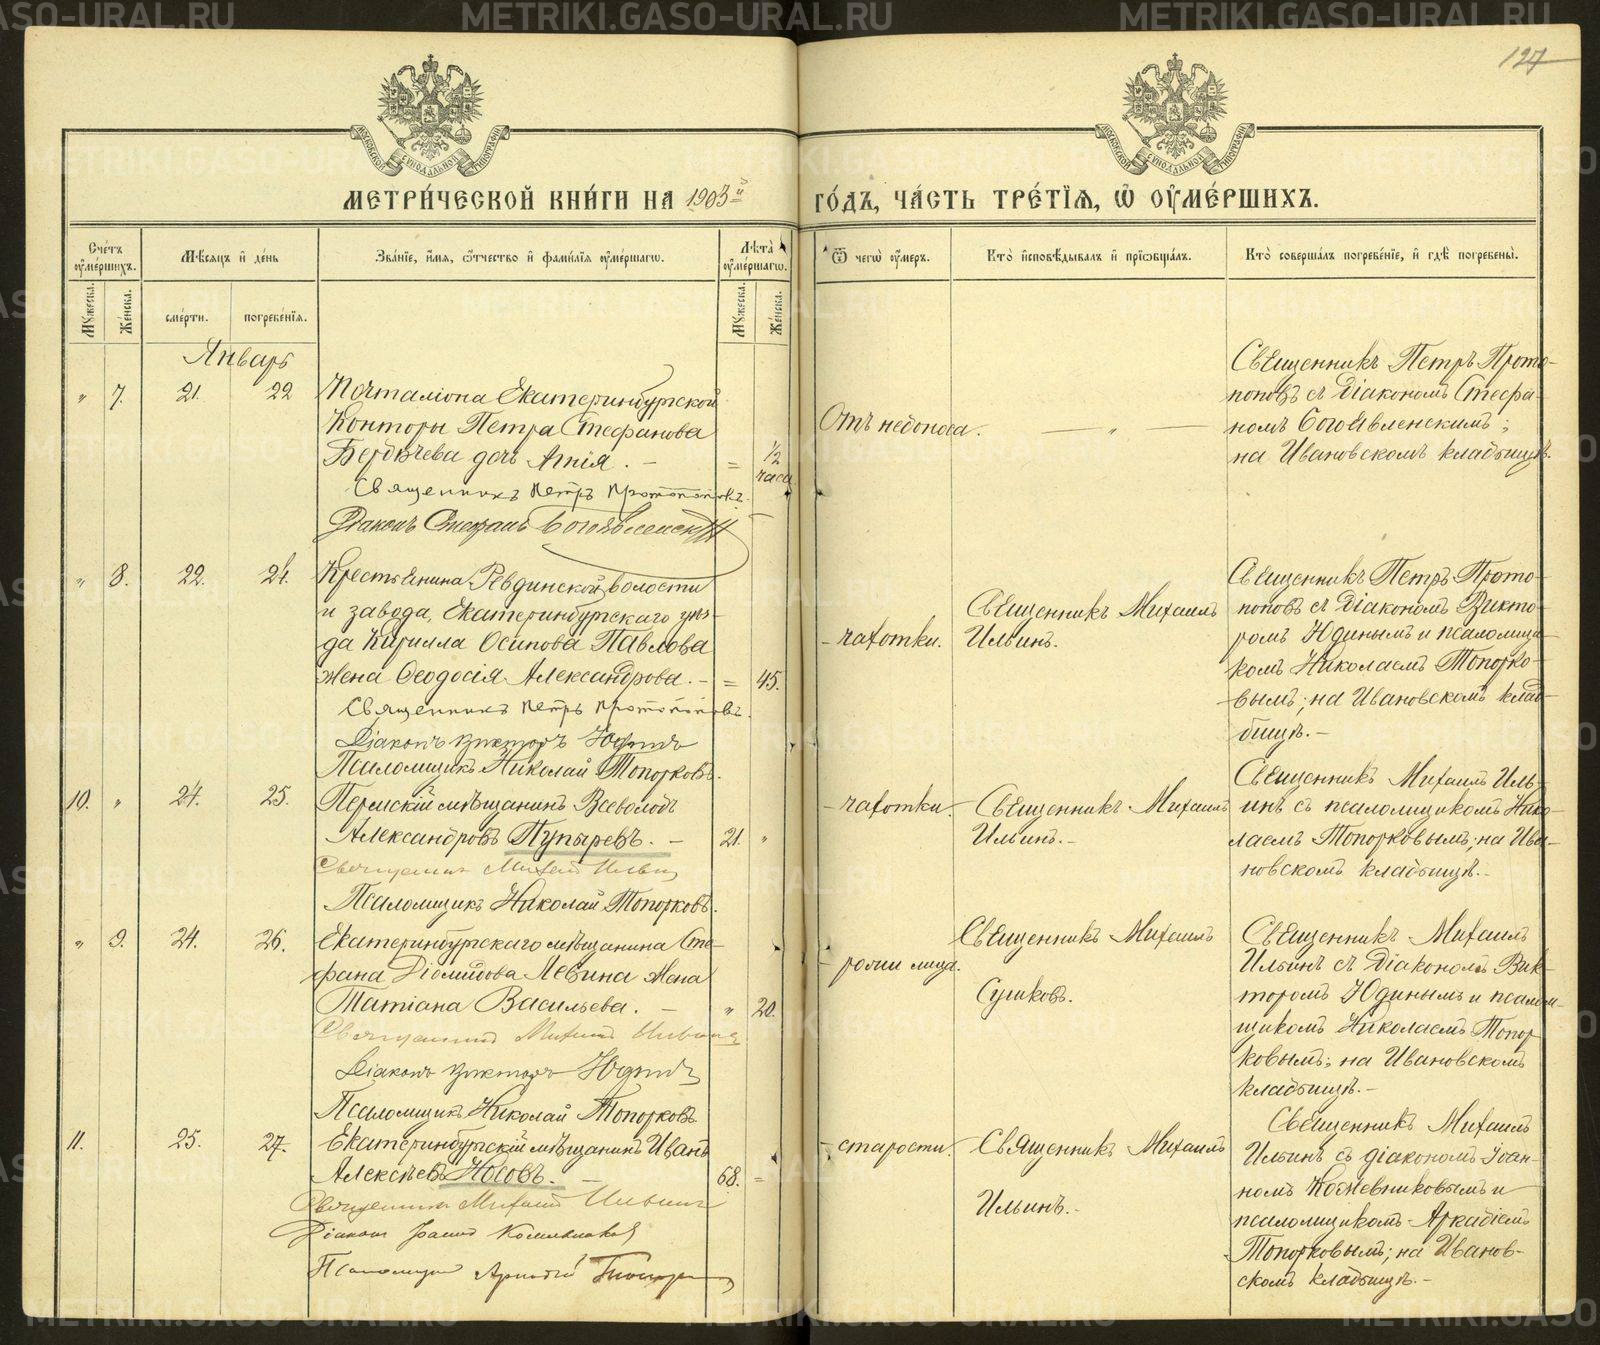 127
МЕТРИ́ЧЕСКОЙ КНИ́ГИ НА 1903й
ГО́ДЪ, ЧА́СТЬ ТРЕ́ТІѦ, Ѽ ОУ҆МЕ́РШИХЪ.
Сче́тъ оу҆ме́ршихъ.
Мѣ́сѧцъ и҆ де́нь
Зва́нїе, и҆́мѧ, ѻ҆́тчество и҆ фами́лїѧ оу҆ме́ршагѡ.
Лѣ́та оу҆ме́ршагѡ.
Ѿ чегѡ̀ оу҆́меръ.
Кто̀ и҆сповѣ́дывалъ и҆ прїѡбща́лъ.
Кто̀ соверша́лъ погребе́нїе, и҆ гдѣ̀ погребены̀.
Му́жеска.
Же́нска.
сме́рти.
погребе́нїѧ.
Му́жеска.
Же́нска.
Январь
" 7. 21. 22
Почталіона Екатеринбургской
Конторы Петра Стефанова
дочь Агнія. –
= 1/2 часа
Священникъ Петръ Протопоповъ.
Діаконъ Стефанъ Богоявленскій
Отъ недоноса.
— " —
Священникъ Петръ Прото-
поповъ съ Діакономъ Стефа-
номъ Богоявленскимъ;
на Ивановскомъ кладбищѣ.
" 8. 22. 24.
Крестьянина Ревдинской волости
и завода, Екатеринбургскаго уѣз-
да Кирилла Осипова Павлова
жена Ѳеодосія Александрова. –
= 45.
Священникъ Петръ Протопоповъ.
Діаконъ Викторъ Юдинъ
Псаломщикъ Николай Топорковъ.
– чахотки.
Священникъ Михаилъ
Ильинъ.
Священникъ Петръ Прото-
поповъ съ Діакономъ Викто-
ромъ Юдинымъ и псаломщи-
комъ Николаемъ Топорко-
вымъ; на Ивановскомъ клад-
бищѣ. –
10. " 24. 25.
Пермскій мѣщанинъ Всеволодъ
Александровъ Пупыревъ. –
21. "
Священникъ Михаилъ Ильинъ
Псаломщикъ Николай Топорковъ.
– чахотки.
Священникъ Михаилъ
Ильинъ. –
Священникъ Михаилъ Иль-
инъ съ псаломщикомъ Нико-
лаемъ Топорковымъ; на Ива-
новскомъ кладбищѣ. –
" 9. 24. 26.
Екатеринбургскаго мѣщанина Сте-
фана Діомидова Левина жена
Татіана Васильева. –
" 20.
Священникъ Михаилъ Ильинъ
Діаконъ Викторъ Юдинъ
Псаломщикъ Николай Топорковъ.
– рожи лица.
Священникъ Михаилъ
Сушковъ.
Священникъ Михаилъ
Ильинъ съ Діакономъ Вик-
торомъ Юдинымъ и псалом-
щикомъ Николаемъ Топор-
ковымъ; на Ивановскомъ
кладбищѣ. –
11. 25. 27.
Екатеринбургскій мѣщанинъ Иванъ
Алексѣевъ Носовъ. –
68. =
Священникъ Михаилъ Ильинъ
Діаконъ Іоаннъ Кожевниковъ
Псаломщикъ Аркадій Топорковъ
– старости.
Священникъ Михаилъ
Ильинъ. –
Священникъ Михаилъ
Ильинъ съ діакономъ Іоан-
номъ Кожевниковымъ и
псаломщикомъ Аркадіемъ
Топорковымъ; на Иванов-
скомъ кладбищѣ. –
METRIKI.GASO-URAL.RU